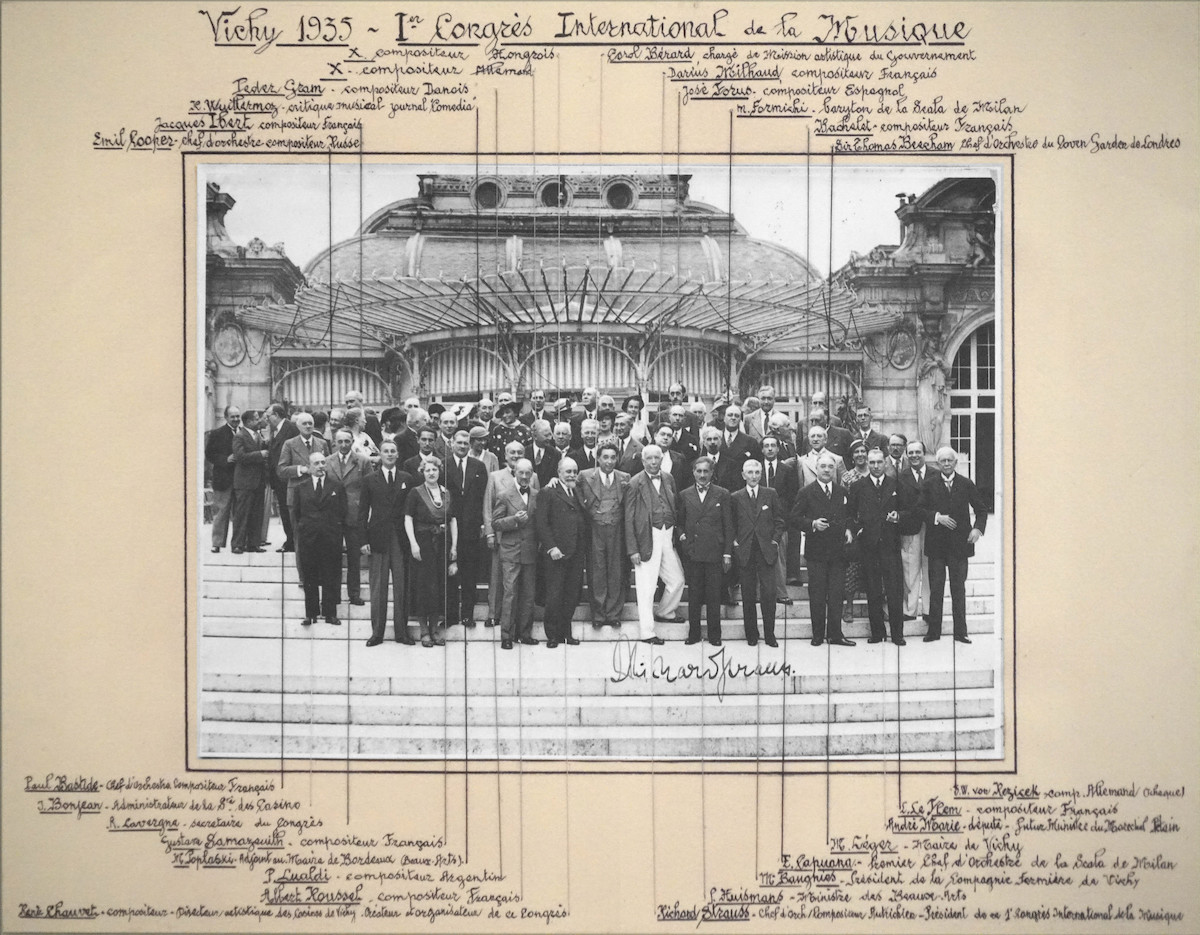 Vichy 1935 ~ Ier Congrès International de la Musique
X compositeur Hongrois
X - compositeur Allemand
Peder Gram - compositeur Danois
E. Vuillermoz - critique musical journal Comœdia
Jacques Ibert compositeur Français
Emil Cooper - chef d'orchestre compositeur Russe
Carol Bérard, chargé de Mission artistique du Gouvernement
Darius Milhaud compositeur Français
José Forus - compositeur Espagnol
M. Formichi - baryton de la Scala de Milan
Bachelet - compositeur Français
Sir Thomas Beecham Chef d'Orchestre du Coven Garden de Londres
Richard Strauss.
Paul Bastide - Chef d'orchestre Compositeur Français
J. Bonjean - Administrateur de la Sté des Casino
R. Lavergne - secretaire du Congrès
Gustave Samazeuilh - compositeur Français
M. Poplaski - Adjoint au Maire de Bordeux (Beaux-Arts)
P. Lualdi - compositeur Argentin
Albert Roussel - compositeur Français
René Chauvet - compositeur - Directeur artistique des Casinos de Vichy. Créateur d'organisateur de ce Congrès
E.W. von Rezicek - comp. Allemand (tcheque)
P. Le Flem - compositeur Français
André Marie - député - futur Ministre du Marechal Pétain
M. Léger - Maire de Vichy
F. Capuana - Premier Chef d'Orchestre de la Scala de Milan
Mr Baugnies - Président de la Compagnie Fermière de Vichy
P. Huismans - Ministre des Beaux-Arts
Richard Strauss - Chef d'Orch/Compositeur Autrichien - Président de ce 1e Congrès International de la Musique